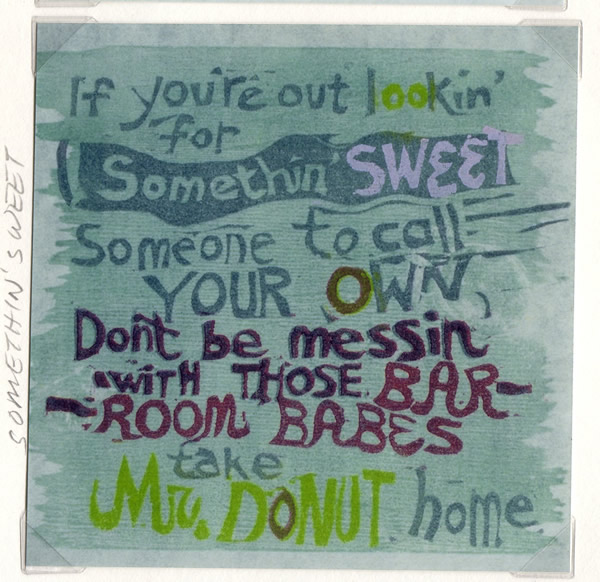 SOMETHIN'SWEET
If you're out lookin'
for
Somethin' SWEET
Someone to call
YOUR OWN,
Don't be messin
with THOSE BAR-
ROOM BABES
take
Mr. DONUT home